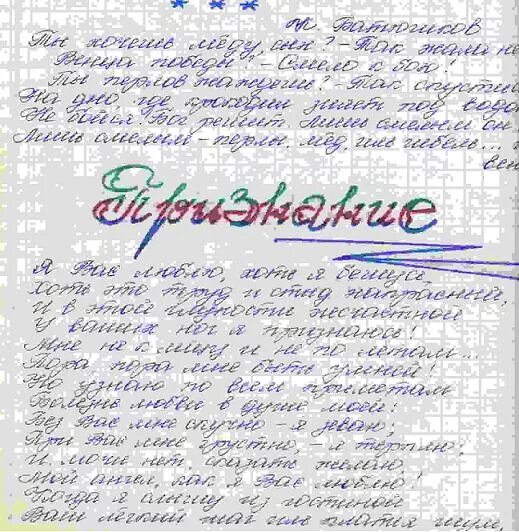 * * *
К. Батюшков
Ты хочешь мёду, сын? - Так жала не
Венца победы? - Смело к бою!
Ты перлов жаждешь? - Так спустис
На дно, где крокодил зияет под водо
Не бойся. Бог решит. Лишь смелым он
Лишь смелым - перлы, мёд, иль гибель...
вен
Признание
Я Вас люблю, хоть я бешусь,
Хоть это труд и стыд напрасный,
И в этой глупости несчастной
У ваших ног я признаюсь!
Мне не к лицу и не по летам...
Пора, пора мне быть умней!
Но узнаю по всем приметам
Болезнь любви в душе моей:
Без Вас мне скучно - я зеваю;
При Вас мне грустно, - я терплю;
И, мочи нет, сказать желаю,
Мой ангел, как я Вас люблю!
Когда я слышу из гостиной
Ваш легкий шаг иль платья шум,